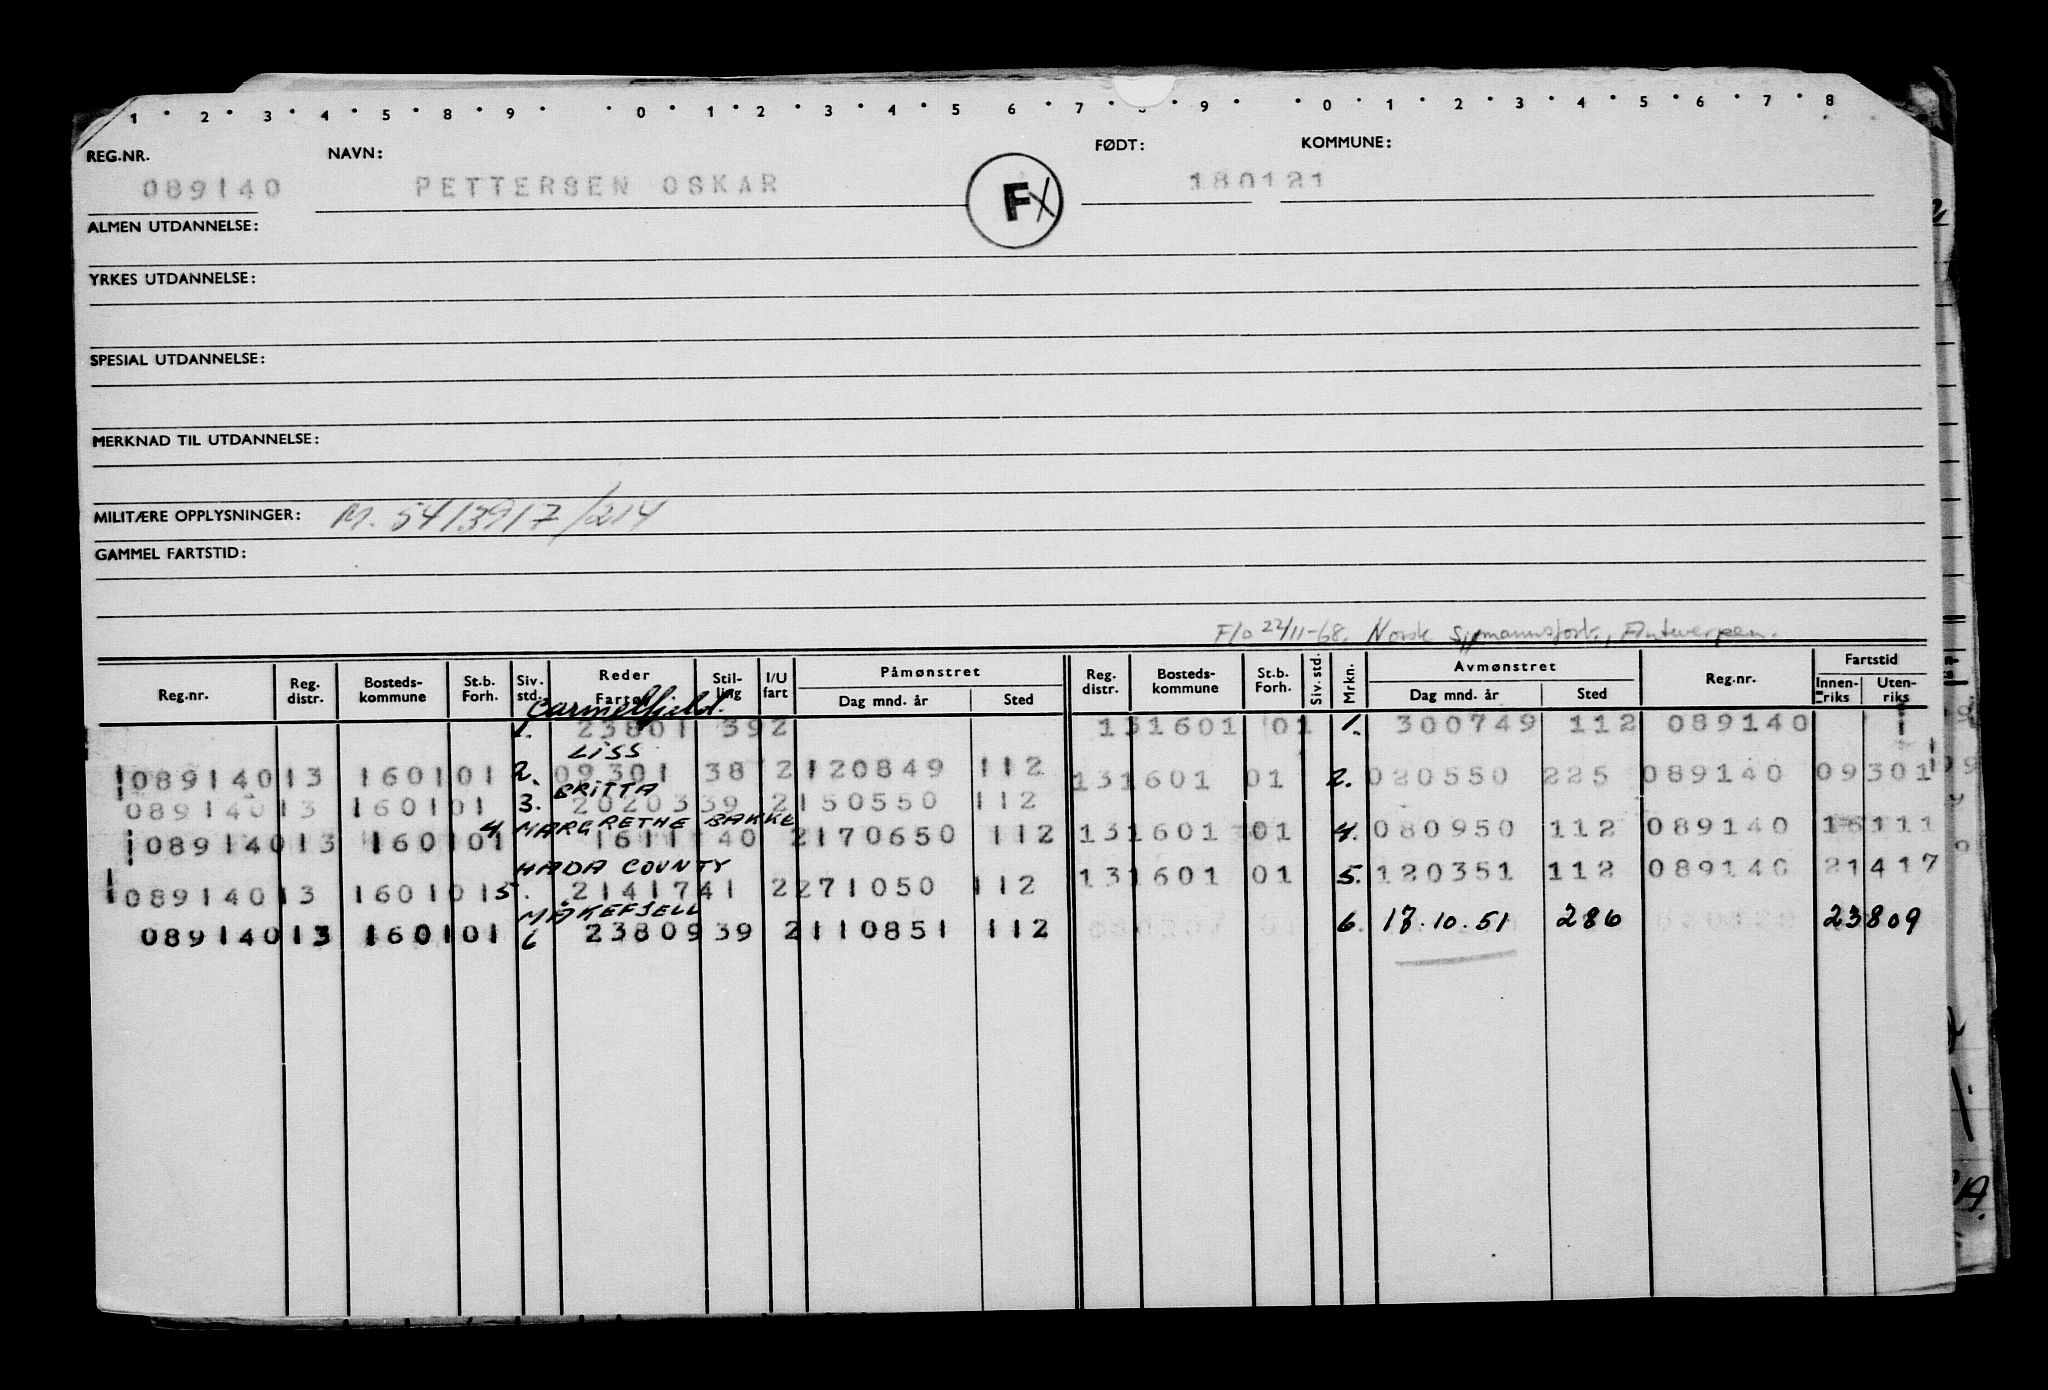 1 · 2 · 3 · 4 · 5 · 8 · 9 · 0 · 1 · 2 · 3 · 4 · 5 · 6 · 7 · 9 · · 0 · 1 · 2 · 3 · 4 · 5 · 6 · 7 · 8
REG.NR. NAVN: FØDT: KOMMUNE:
089140 PETTERSEN OSKAR FX 180121
ALMEN UTDANNELSE:
YRKES UTDANNELSE:
SPESIAL UTDANNELSE:
MERKNAD TIL UTDANNELSE:
MILITÆRE OPPLYSNINGER: M. 5413917/214
GAMMEL FARTSTID:
F/o 22/11-68. Norsk Antwerpen.
Reg.nr. Reg. distr. Bosteds-kommune St.b. Forh. Siv. std. Reder Fartøi Stil-ling I/U fart Påmønstret Dag mnd. år Sted Reg. distr. Bosteds-kommune St.b. Forh. Siv. std. Mrkn. Avmønstret Dag mnd. år Sted Reg.nr. Fartstid Innen-riks Uten-riks
Carmelfjeld.
1. 23801 392 131601 01 1. 300749 112 089140
LISS
089140 13 1601 01 2. 09301 38 2 120849 112 131601 01 2. 020550 225 089140 09301
BRITTA
089140 13 1601 01 3. 20203 39 2 150550 112
4 MARGRETHE BAKKE
089140 13 1601 01 1611 40 2 170650 112 131601 01 4. 080950 112 089140 16111
HADA COUNTY
089140 13 1601 01 5. 21417 41 2 271050 112 131601 01 5. 120351 112 089140 21417
MÅKEFJELL
089140 13 1601 01 6 23809 39 2 110851 112 6. 17.10.51 286 23809